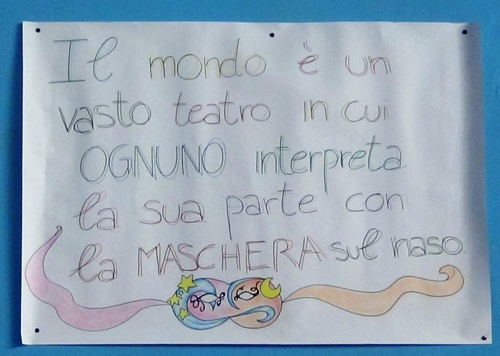 Il mondo è un
vasto teatro in cui
OGNUNO interpreta
la sua parte con
la MASCHERA sul naso